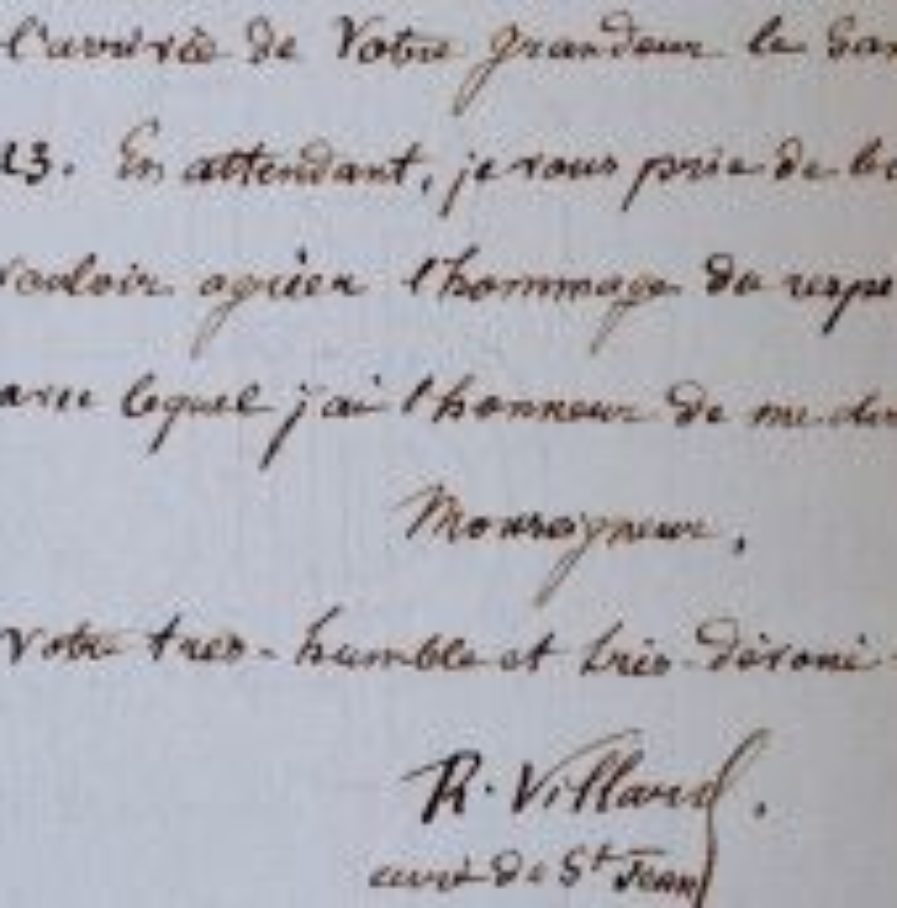 l'arrivée de Votre Grandeur le Sam
23. En attendant, je vous prie de bi
vouloir agréer l'hommage du respe
avec lequel j'ai l'honneur de me dire
Monseigneur,
Votre très-humble et très-dévoué
R. Villard.
curé de St Jean